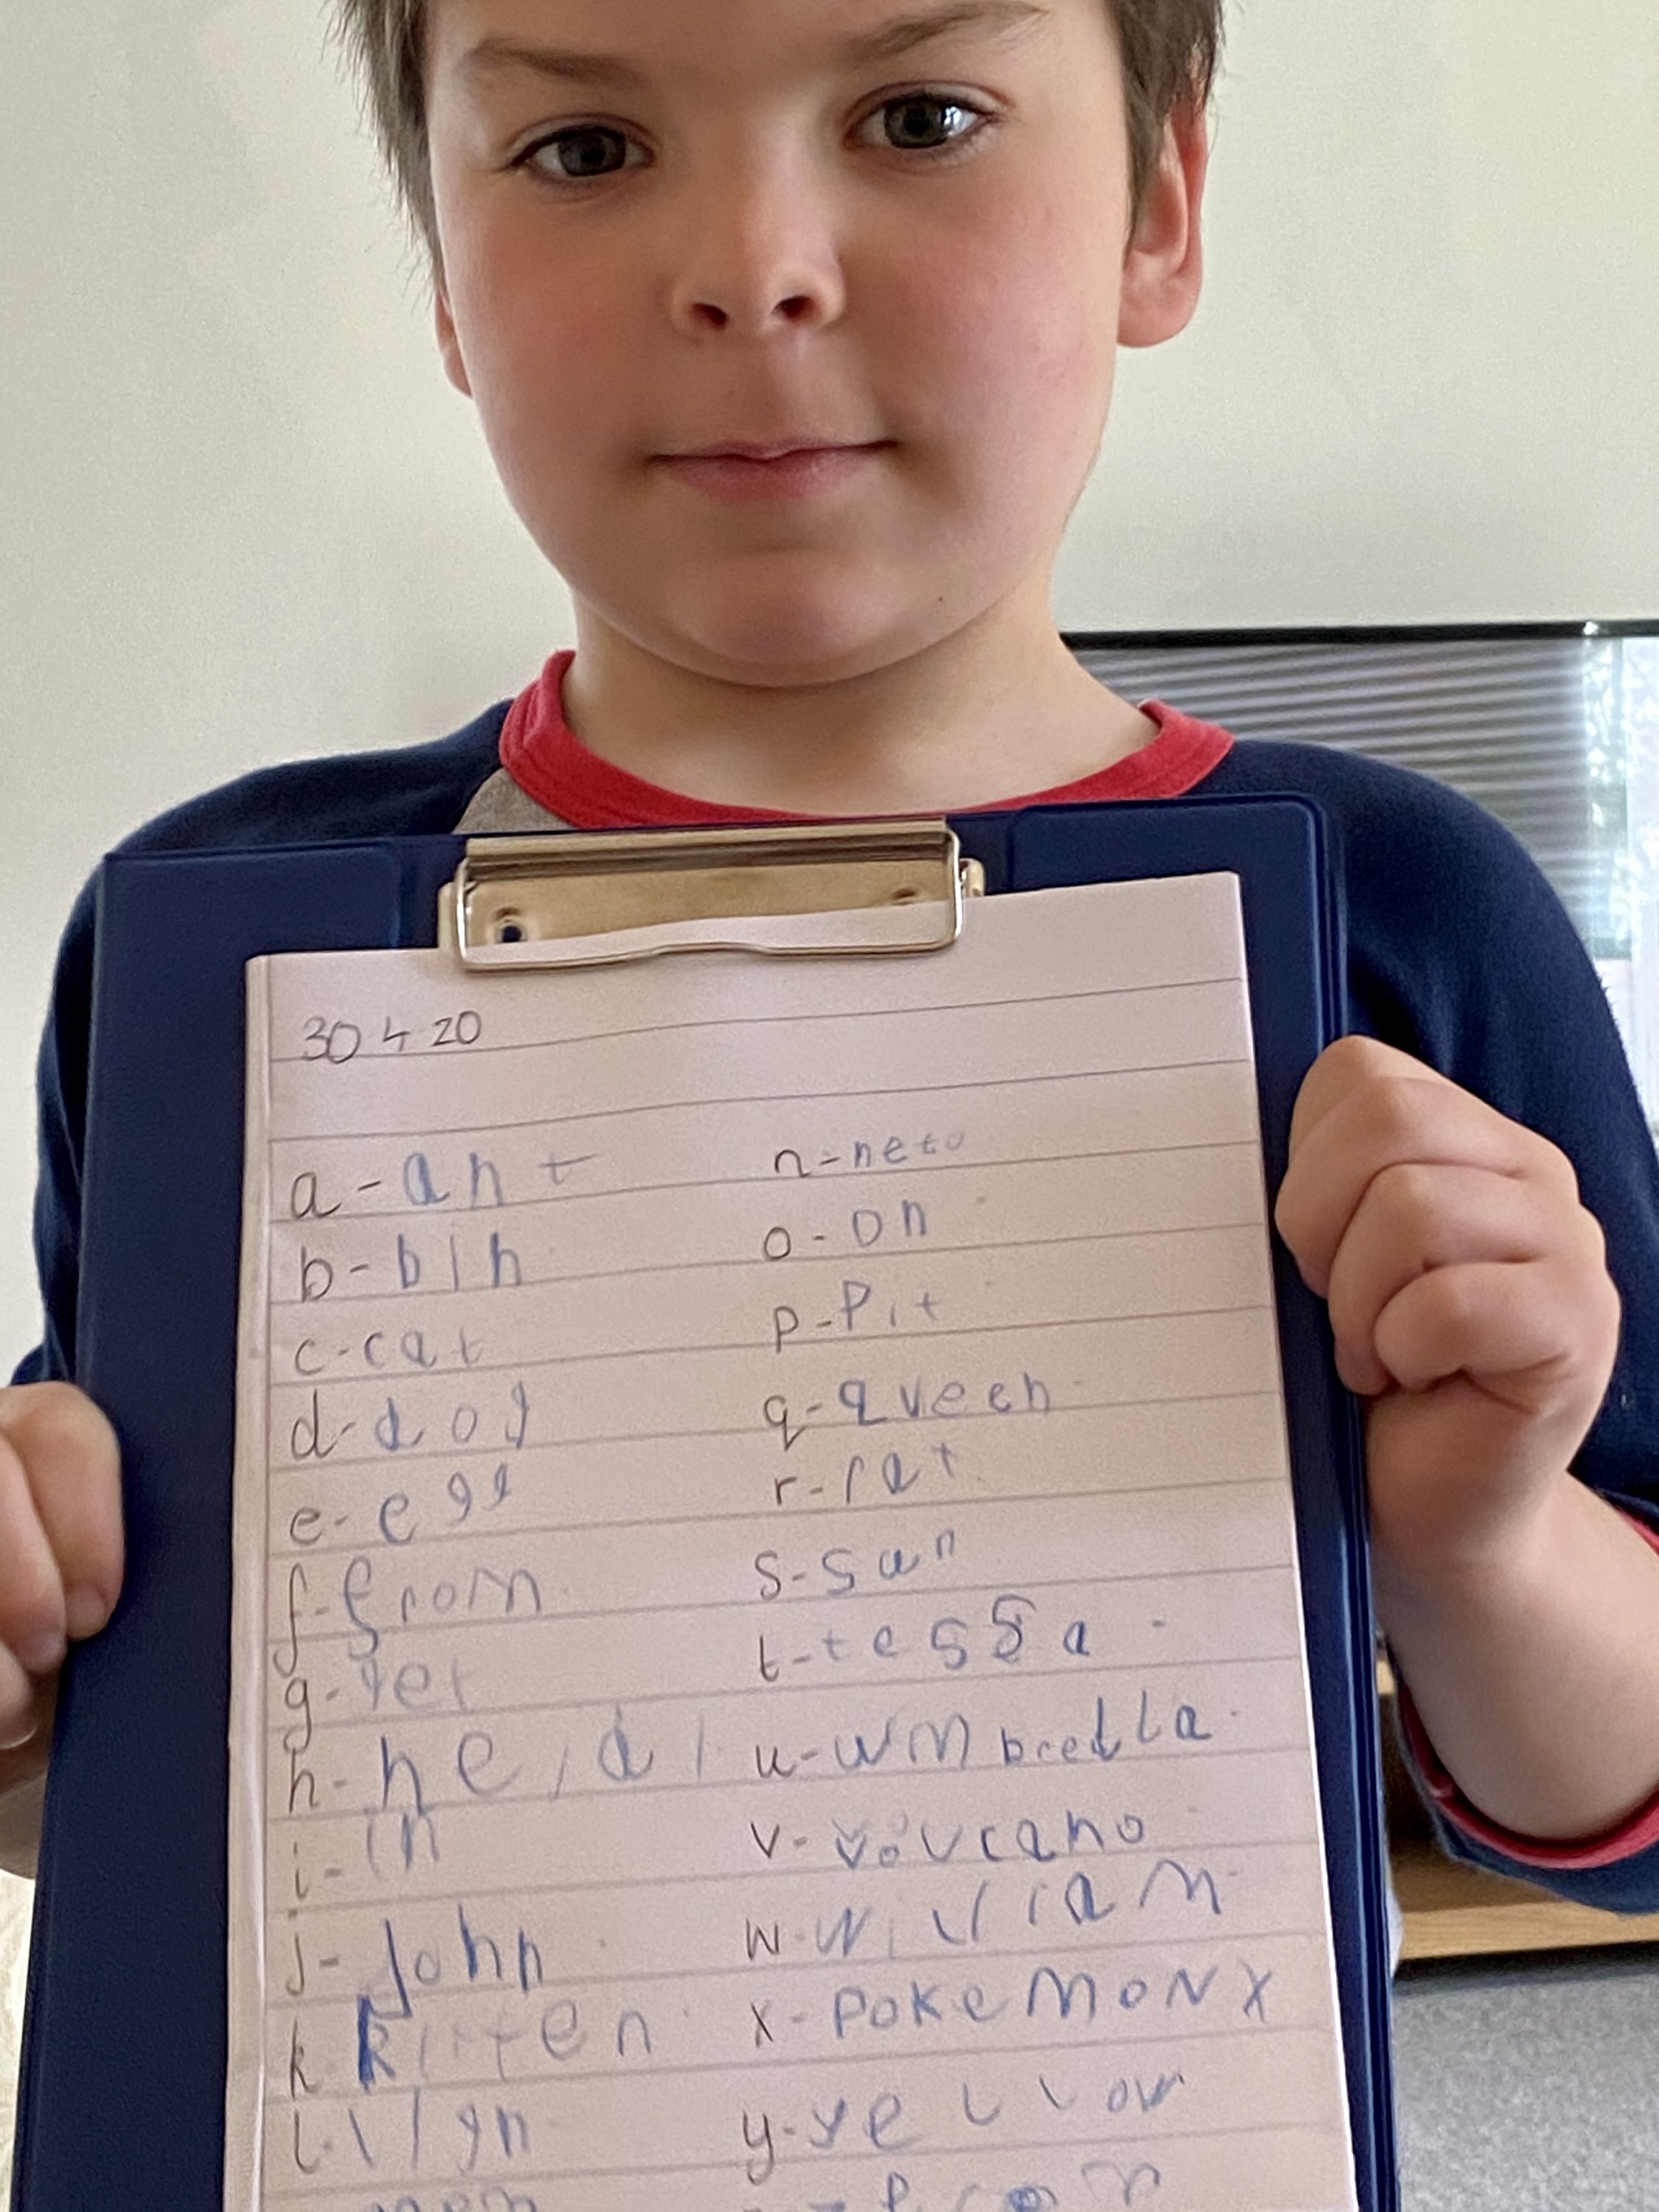 30 4 20
a - ant
b - bin
c - cat
d - dog
e - egg
f - from
g - get
h - heidi
i - in
j - John
k kitten
l - lign
n -
o - on
p - Pit
q - qveen
r - rat
s - sun
t - tessa
u - wmbrella
v - vovcano
w - William
x - POKeMONX
y - yellow